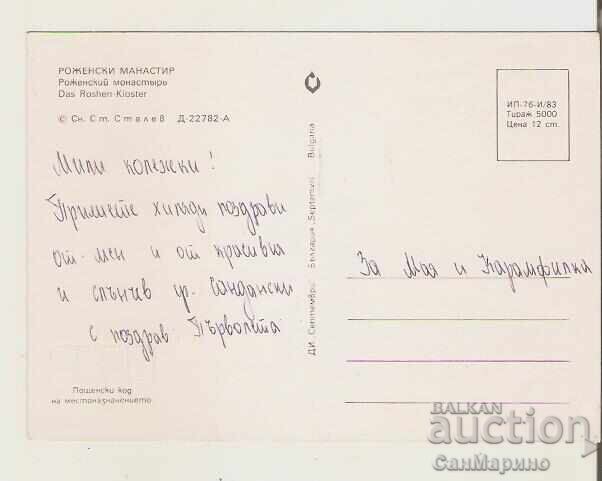 РОЖЕНСКИ МАНАСТИР
Роженский монастырь
Das Roshen-Kloster
© Сн. Ст. Сталев Д-22782-А
Мили колежки!
Приемете хиляди поздрави
от мен и от красивия
и слънчев гр. Сандански
с поздрав: Първолета
Пощенски код
на местоназначението
ДИ „Септември" България „Septemvri" Bulgaria
ИП-76-И/83
Тираж 5000
Цена 12 ст.
За Мая и Карамфилка
BALKAN
auction
СанМарино